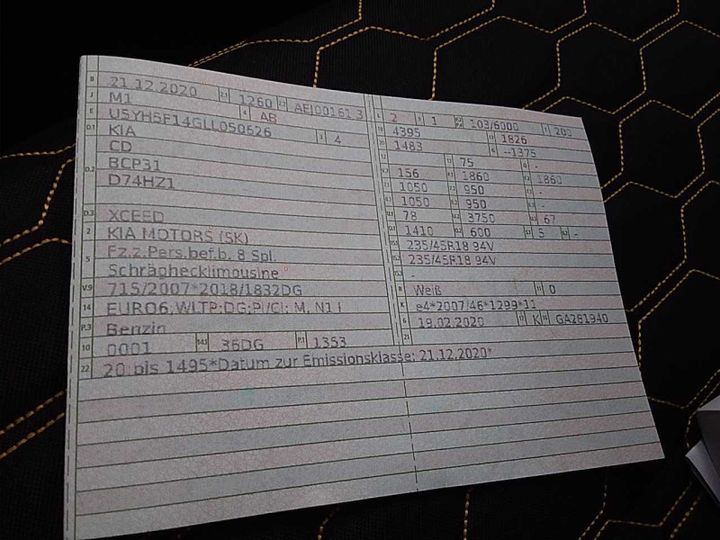 B 21.12.2020 2.1 1260 2.2 AEJ00161 3
J M1 4 AB
E U5YH5F14GLL050626 3 4
D.1 KIA
CD
D.2 BCP31
D74HZ1
D.3 XCEED
2 KIA MOTORS (SK)
5 Fz.z.Pers.bef.b. 8 Spl.
Schräghecklimousine
V.9 715/2007*2018/1832DG
14 EURO6;WLTP;DG;PI/CI; M, N1 I
P.3 Benzin
10 0001 14.1 36DG P.1 1353
22 20:bis 1495*Datum zur Emissionsklasse: 21.12.2020*
L 2 9 1 103/6000 T 200
18 4395 19 1826
20 1483 G --1375
12 - 13 75 Q -
156 1860 1860
1050 950 -
1050 950 -
78 3750 67
1410 600 5 -
235/45R18 94V
235/45R18 94V
-
R Weiß 11 0
K e4*2007/46*1299*11
6 19.02.2020 17 K 16 GA281940
21